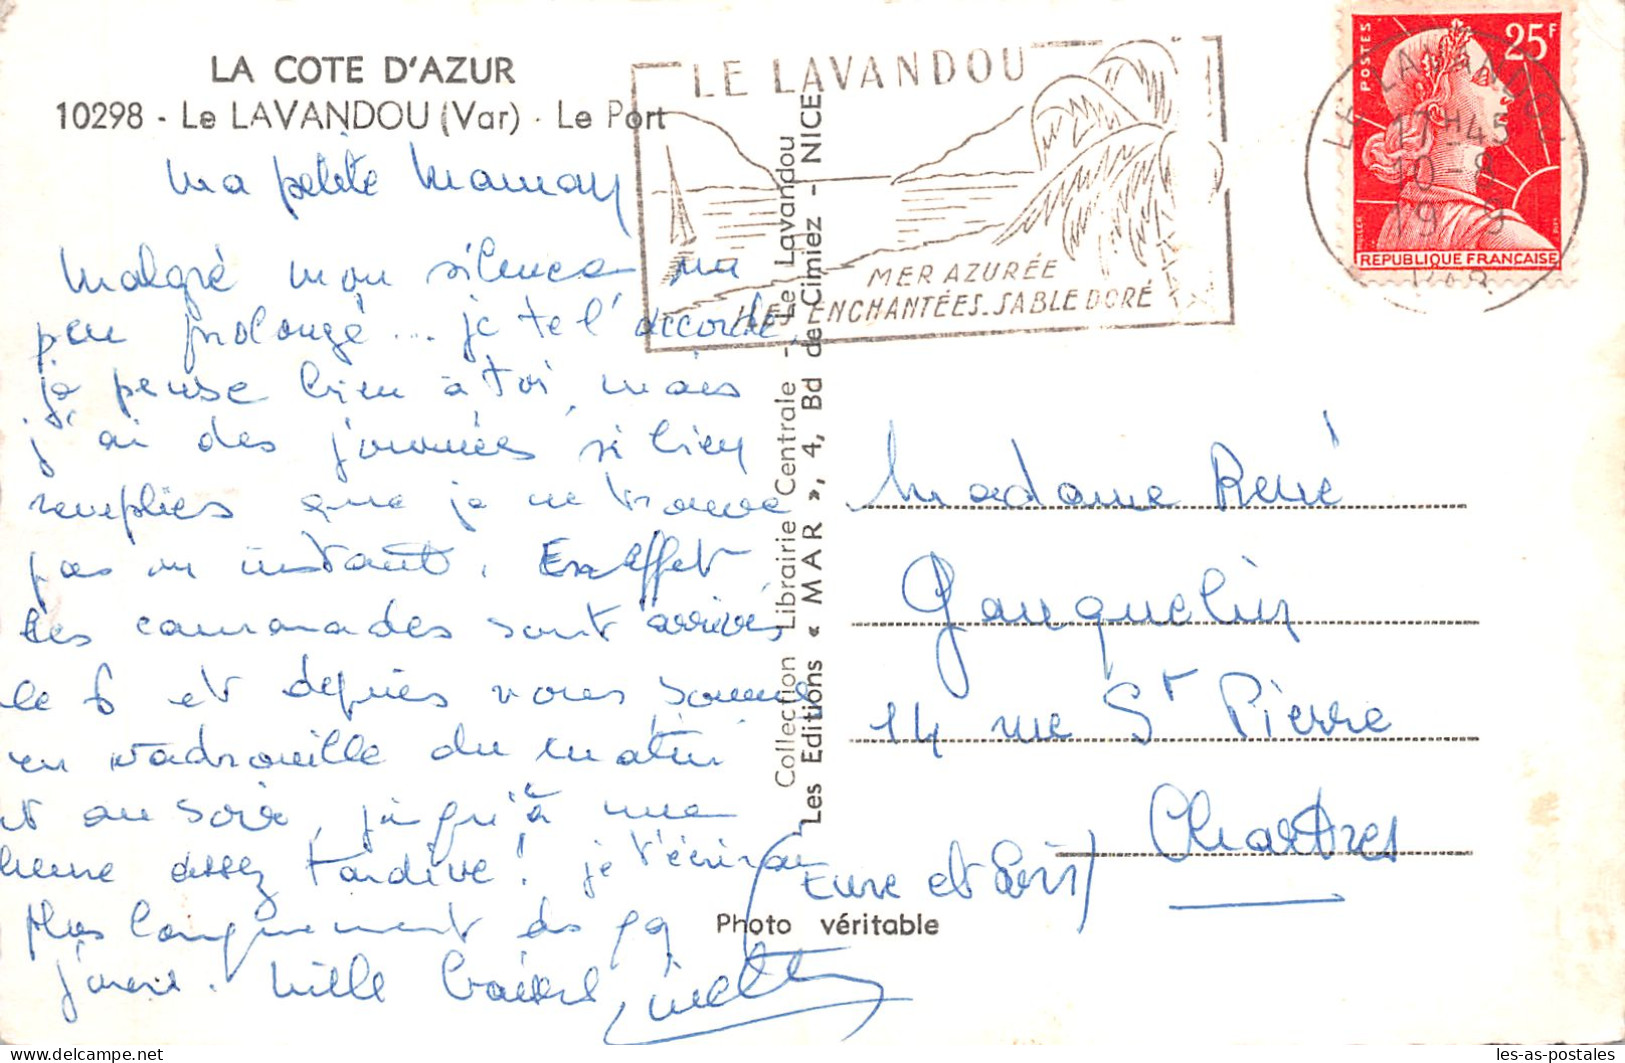 LA COTE D'AZUR
10298 - Le LAVANDOU (Var) - Le Port
Ma petite Maman
Malgré mon silence un
peu prolongé ... je te l'accorde,
je pense bien à toi, mais
j'ai des journées si bien
remplies que je ne trouve
pas un instant. En effet
les camarades sont arrivés
le 6 et depuis nous sommes
en vadrouille du matin
et au soir, jusqu'à une
heure assez tardive! je t'écrirai
plus longuement dès que
j'aurai. Mille baisers
LE LAVANDOU
MER AZURÉE
ILES ENCHANTÉES. SABLE DORÉ
Collection Librairie Centrale - Le Lavandou
Les Editions « MAR », 4, Bd de Cimiez - NICE
POSTES
25F
MULLER
REPUBLIQUE FRANÇAISE
LE LAVANDOU
17H45
10 8
VAR
Madame René
Gauquelin
14 rue St Pierre
Chartres
(Eure et Loir)
Photo véritable
les-as-postales
https://www.delcampe.net